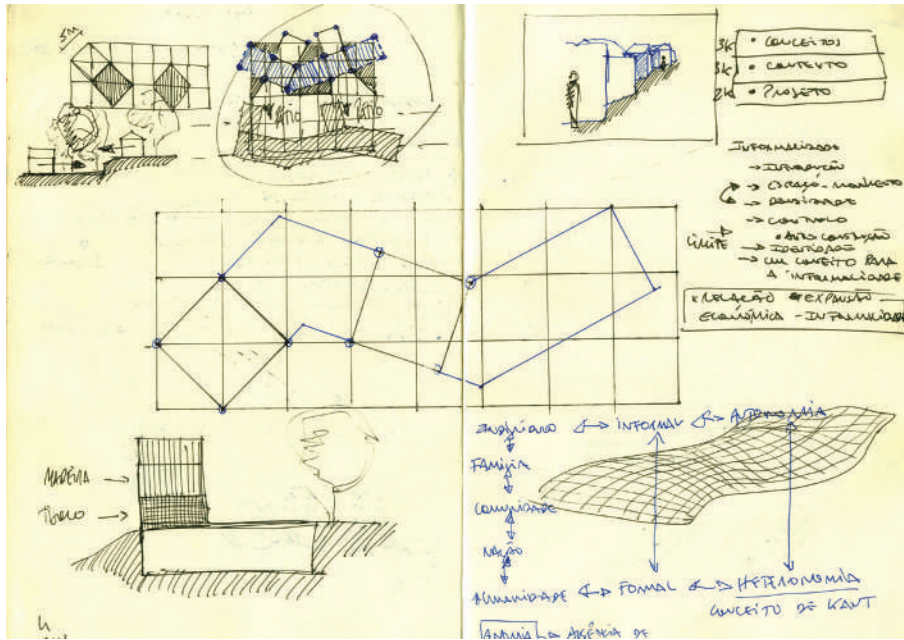 5M
PÁTIO PÁTIO
3K • CONCEITOS
3K • CONTEXTO
2K • PROJETO
INFORMALIDADE
→ INTRODUÇÃO
→ ESPAÇO-MANIFESTO
→ DENSIDADE
→ CONTROLO
• AUTO CONSTRUÇÃO
LIMITE → IDENTIDADE
→ UM CONCEITO PARA
A INFORMALIDADE
RELAÇÃO EXPANSÃO —
ECONÓMICA - INFORMALIDADE
MADEIRA →
TIJOLO →
INDIVÍDUO ↔ INFORMAL ↔ AUTONOMIA
FAMÍLIA
COMUNIDADE
NAÇÃO
HUMANIDADE ↔ FORMAL ↔ HETERONOMIA
CONCEITO DE KANT
ANOMIA → AUSÊNCIA DE